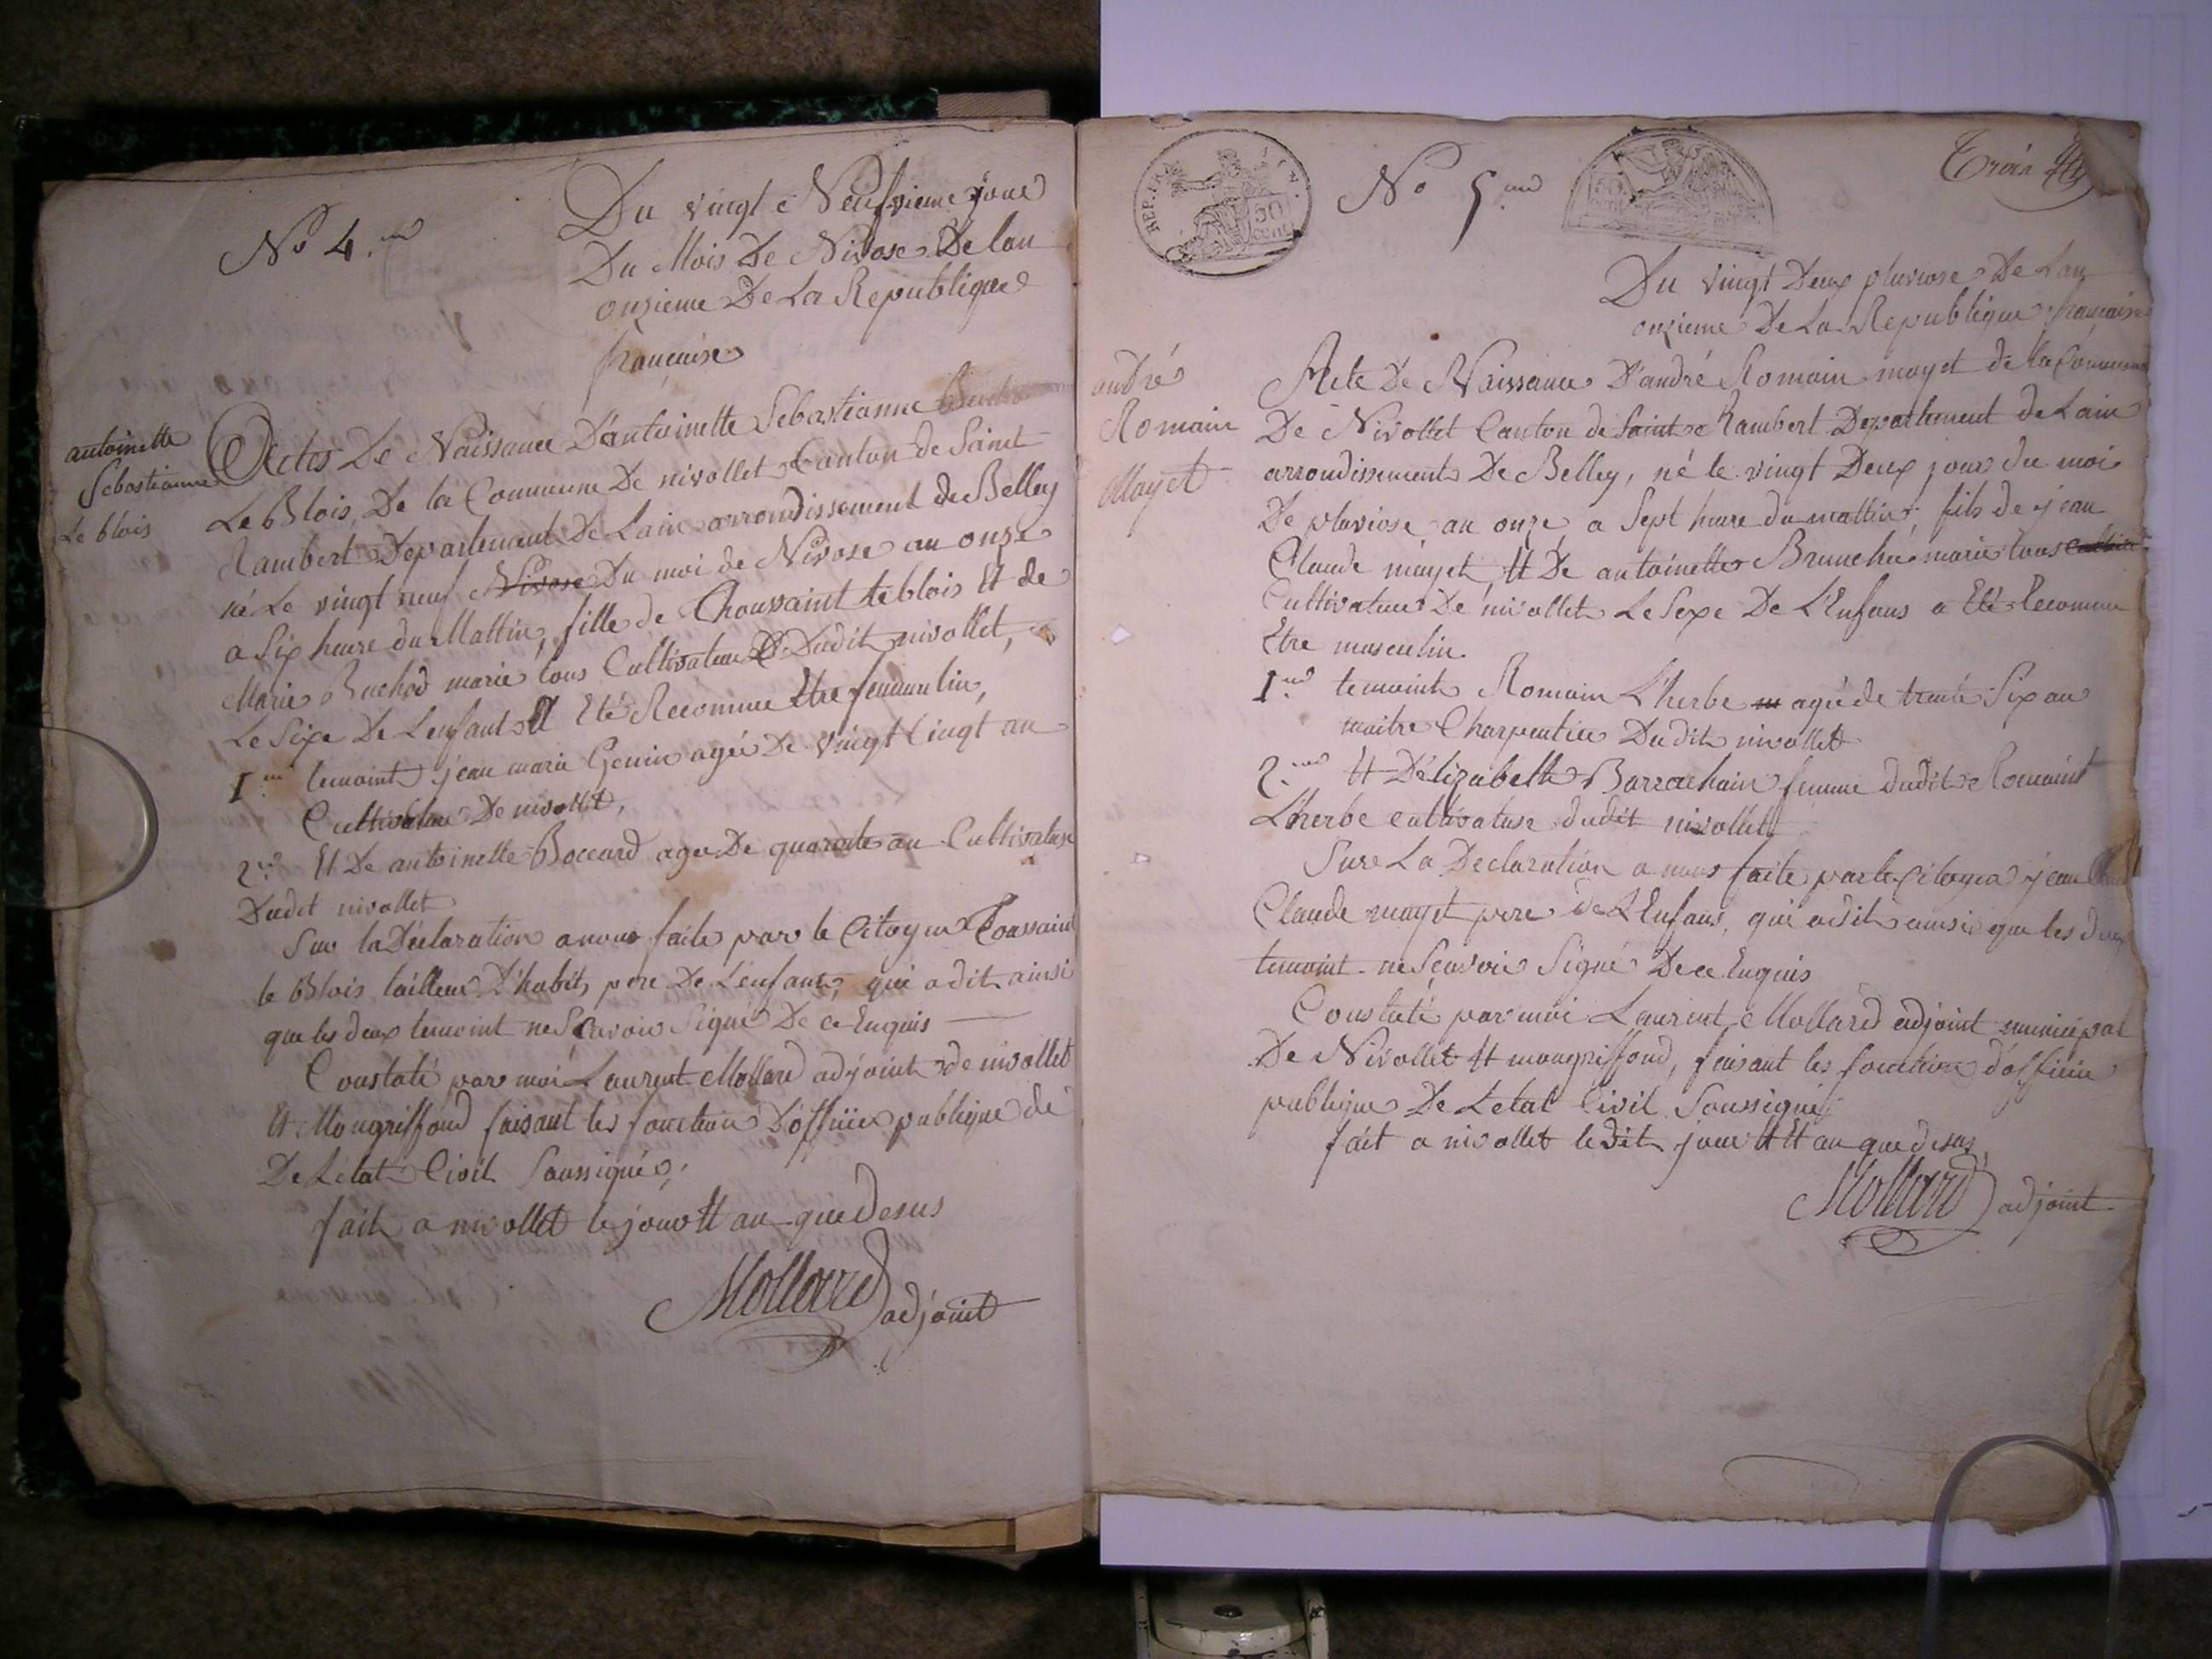 No 4.me
Du vingt Neufvieme jour
Du Mois De Nivose De lan
onzieme De La Republique
française
antoinette
Sebastianne
Le blois
Actes De Naissance D'antoinette Sebastianne
Le Blois, De la Commune De nivollet Canton de Saint
Rambert Departement De Lain arrondissement de Belley
né Le vingt neuf Nivose Du moi de Nivose an onze
a Six heure du Mattin, fille de Thoussaint le blois Et de
Marie Buchod marié tous Cultivateur Dudit nivollet,
Le Sexe De Lenfant A Eté Reconnue Etre femmulin,
1.me temoint jean marie Genin agée De vingt Cinqt an
Cultivateur De nivollet,
2.me Et De antoinette Boccard agée De quarante an Cultivatuse
Dudit nivollet
Sur la Déclaration a nous faite par le Citoyen Toussaint
le Blois tailleur D'habit, pere De L'enfant, qui a dit ainsi
que les deux temoint ne Scavoir Signé De ce Enquis
Constaté par moi Laurent Mollard adjoint de nivollet
Et Mongriffond faisant les fonction D'officier publique de
De Letat Civil Soussigné,
fait a nivollet le jour Et an que Desus
Mollard adjoint
REP. FRA.
50
cent.
No 5.me
50
cent.
Du vingt Deux pluviose De Lan
onzieme De La Republique française
andré
Romain
Mayet
Acte De Naissance D'andré Romain mayet de la Commune
De Nivollet Canton de Saint Rambert Departement de Lain
arrondissement De Belley, né le vingt Deux jour du moi
De pluviose an onze a Sept heure du mattin, fils de jean
Claude mayet Et De antoinette Brunché marié tous
Cultivateur De nivollet Le Sexe De L'Enfans a Eté Reconnue
Etre masculin.
1.me temoint Romain L'herbe agée de trante Six an
maitre Charpentier Dudit nivollet
2.me Et D'élizabeth Barrachain femme dudit Romaint
L'herbe cultivatuse dudit nivollet
Sure La Declaration a nous faite par le Citoyen jean
Claude mayet pere de L'Enfans, qui a dit ainsi que les deux
temoint ne Scavoir Signé De ce Enquis
Constaté par moi Laurent Mollard adjoint municipal
De Nivollet Et mongriffond, faisant les fonction d'officier
publique De Letat Civil Soussigné
fait a nivollet le dit jour Et an que desus,
Mollard adjoint